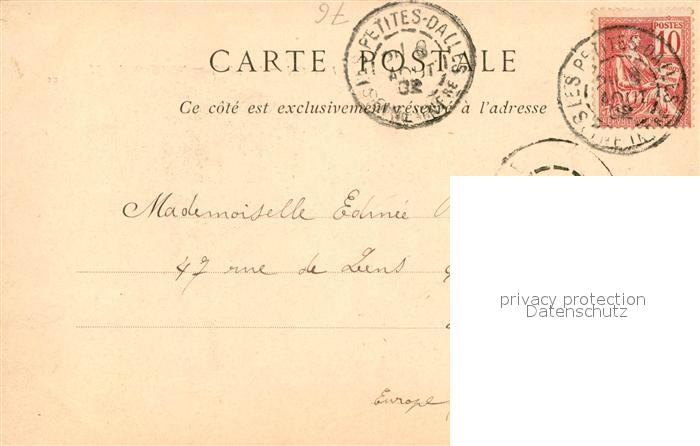 76
CARTE POSTALE
Ce côté est exclusivement réservé à l'adresse
LES PETITES-DALLES
18
AOUT
02
POSTES
10
LES PETITES-DALLES
AOUT
Mademoiselle Edmée
47 rue de Lens
Europe
privacy protection
Datenschutz